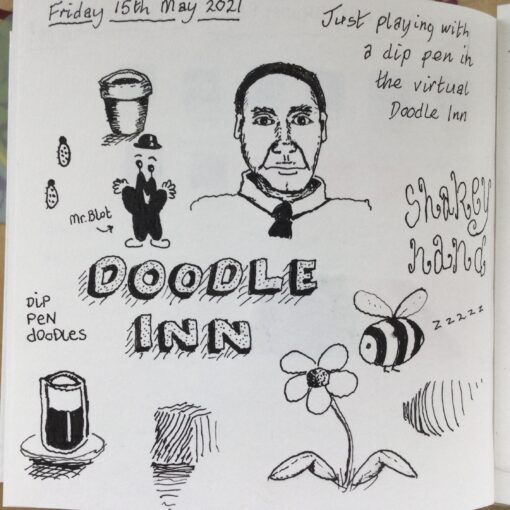 Friday 15th May 2021
Just playing with
a dip pen in
the virtual
Doodle Inn
Mr. Blot
shakey
hand
DOODLE
INN
DIP
PEN
doodles
zzzzz